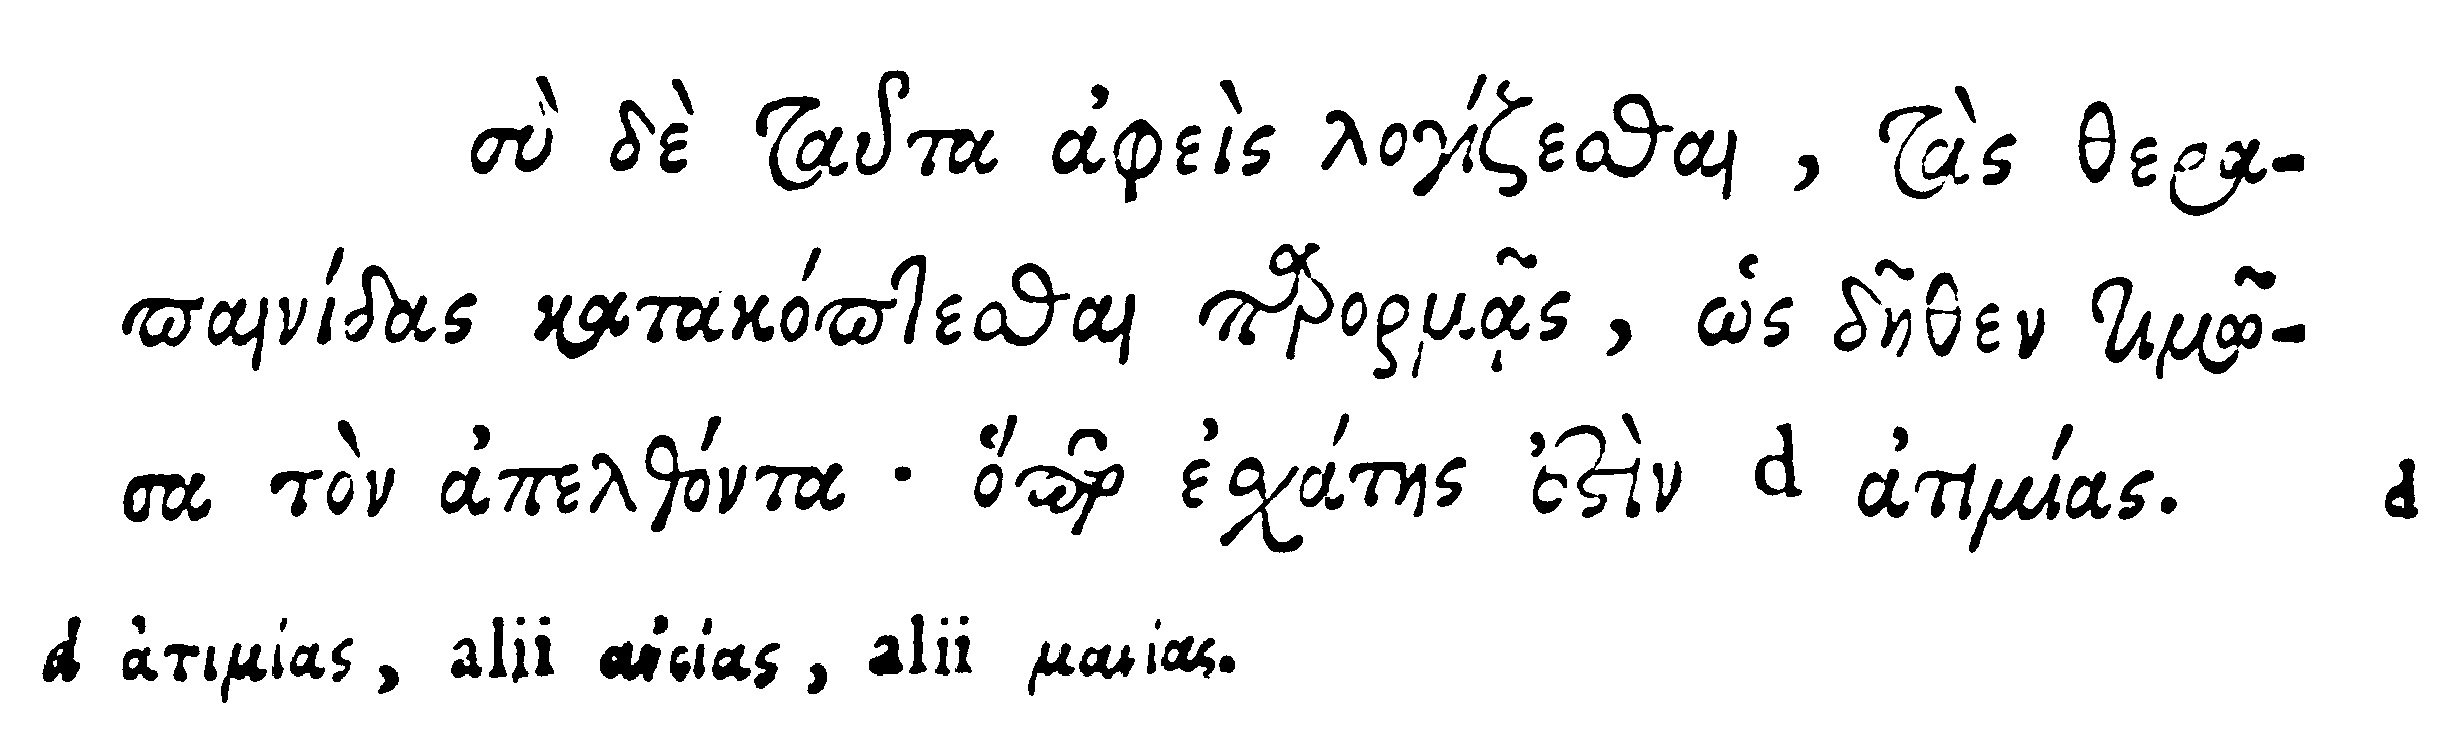 σὺ δὲ ταῦτα ἀφεὶς λογίζεσθαι, τὰς θερα-
παινίδας κατακόπτεσθαι παρορμᾷς, ὡς δῆθεν τιμῶ-
σα τὸν ἀπελθόντα· ὅπερ ἐσχάτης ἐστὶν d ἀτιμίας. d
d ἀτιμίας, alii ἀνοίας, alii μανίας.